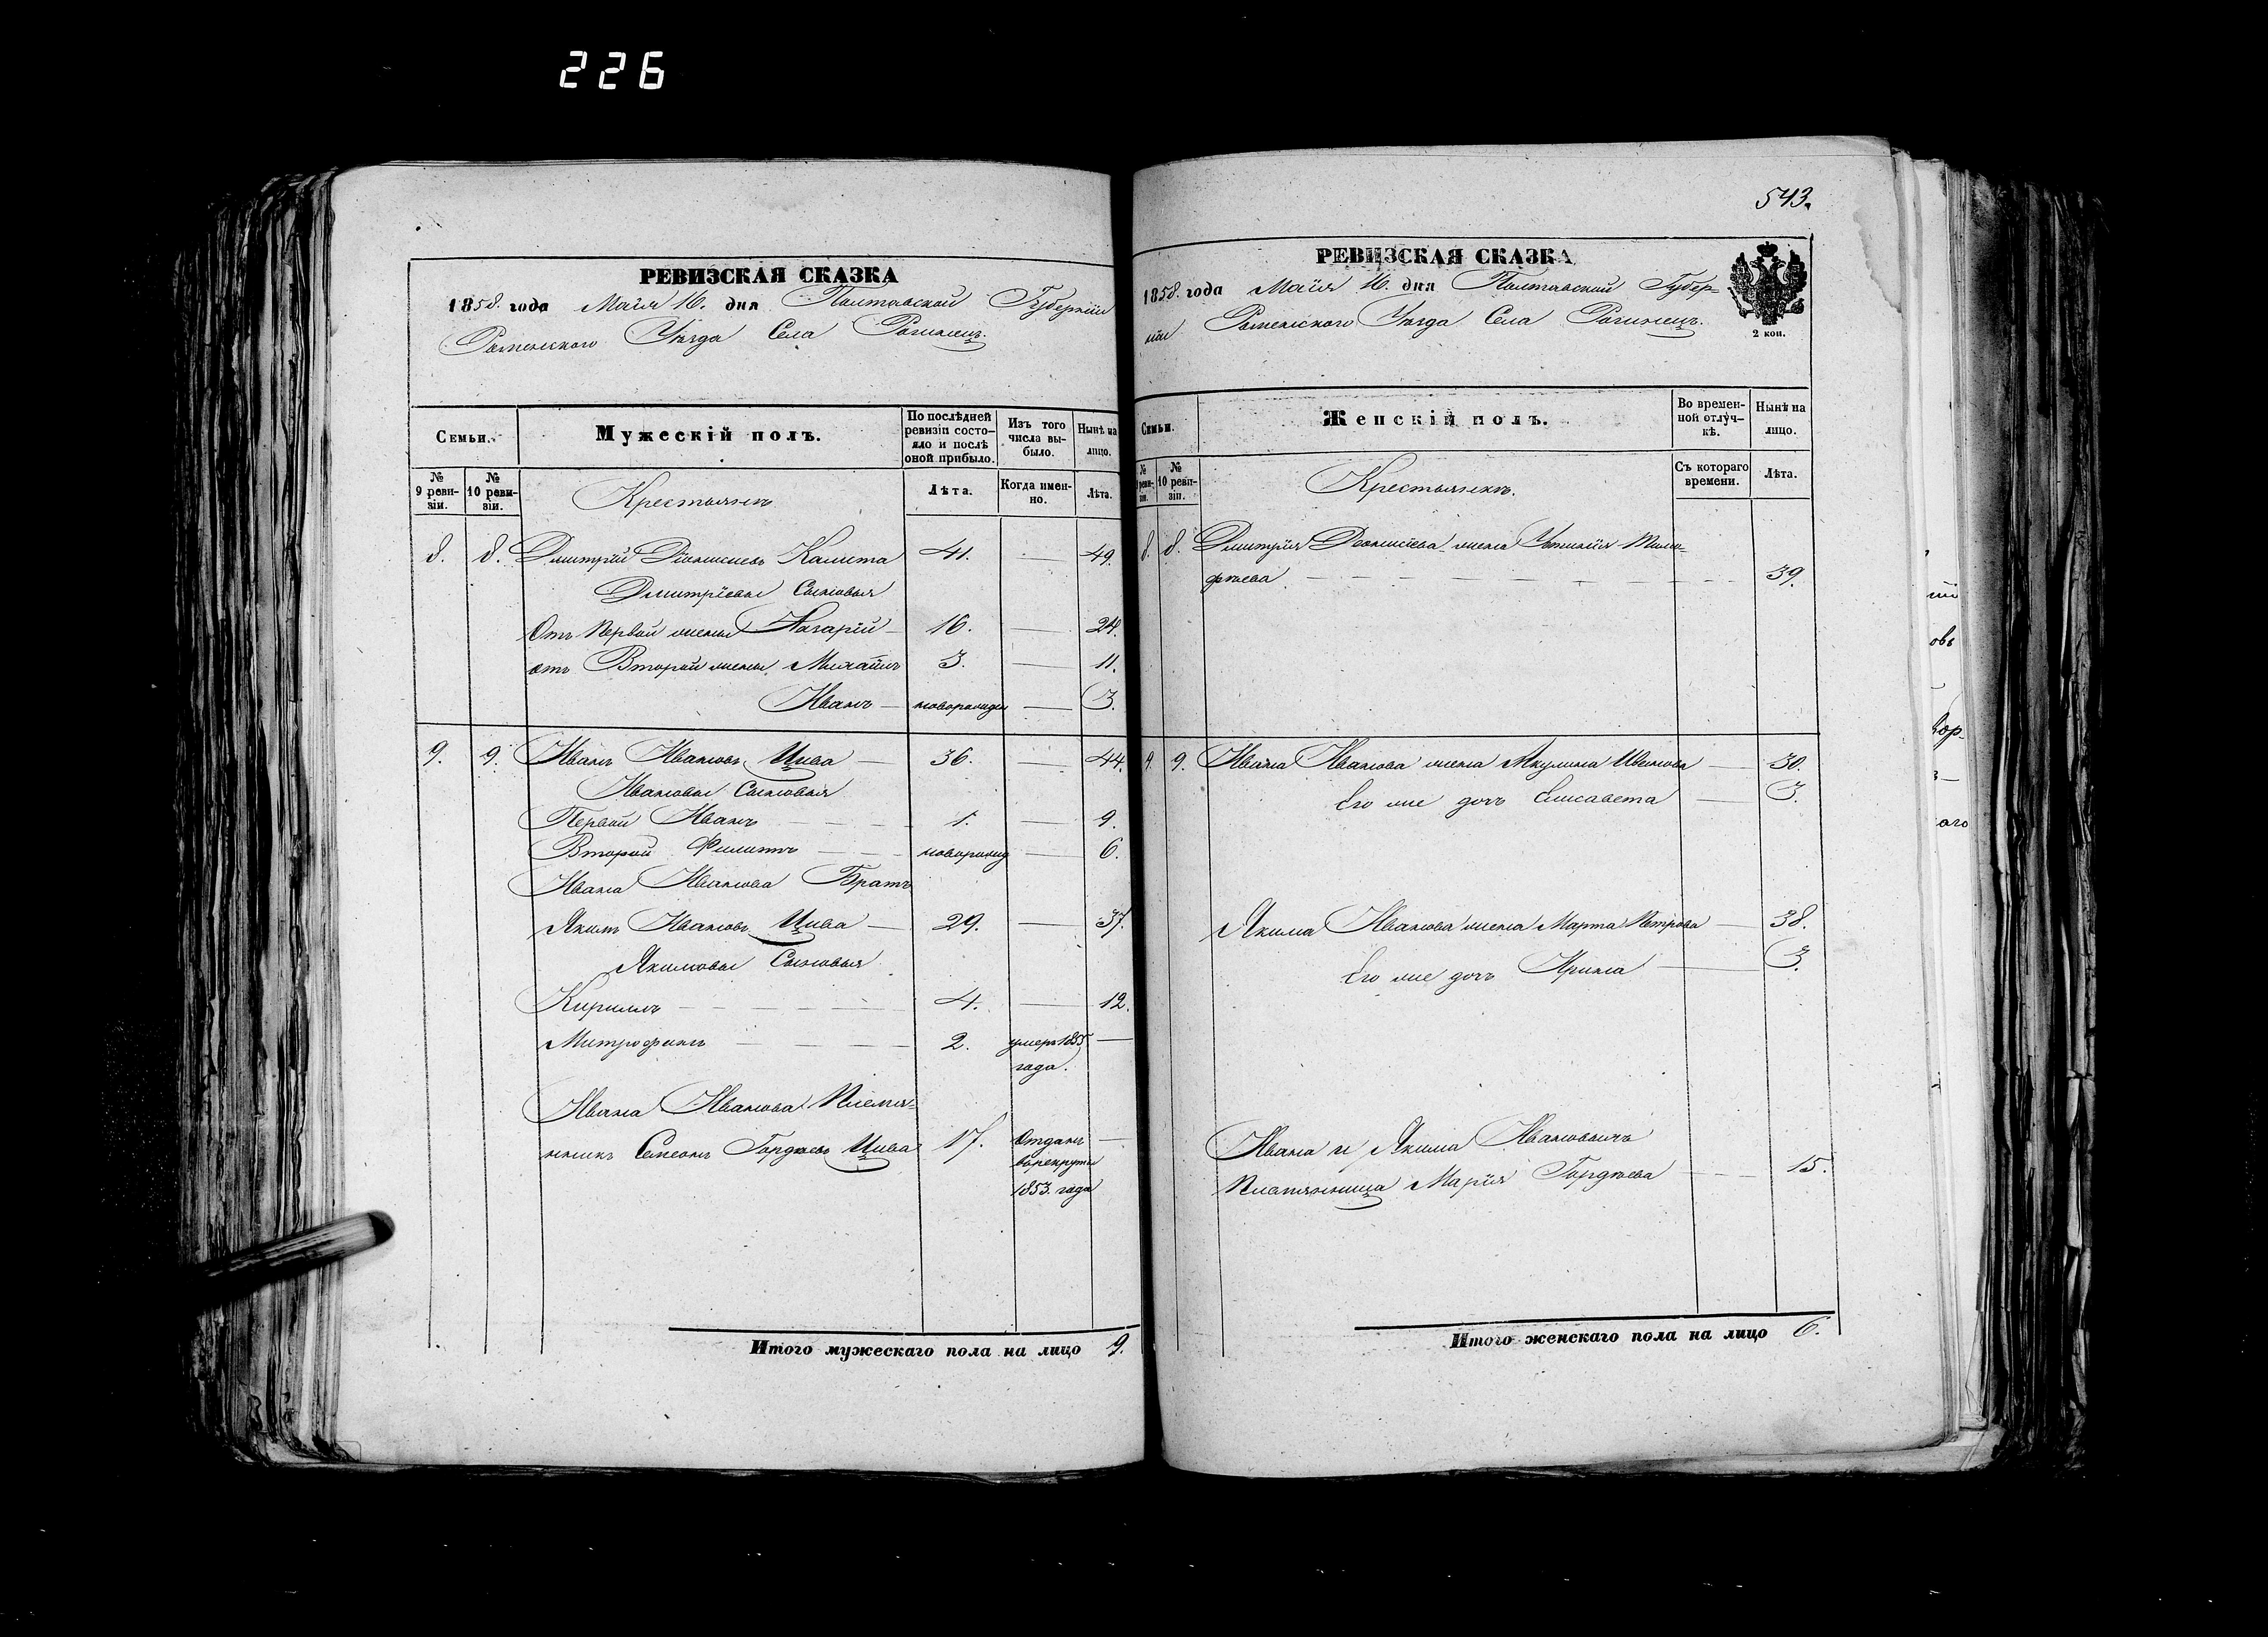 226
РЕВИЗСКАЯ СКАЗКА
1858. года Маія 16. дня Полтавской Губерніи
Роменского Уезда Села
Семьи.
Мужескій полъ.
По послѣдней ревизіи состояло и послѣ оной прибыло.
Изъ того числа выбыло.
Нынѣ на лицо.
№ 9 ревизіи.
№ 10 ревизіи.
Крестьянъ
Лѣта.
Когда именно.
Лѣта.
8. 8. Дмитрій Діонисиевъ Калита 41. — 49.
Дмитріевы Сыновья
Отъ Первой жены Назарій — 16. — 24.
отъ Второй жены Михаилъ 3. — 11.
Иванъ — новорожден — 3.
9. 9. Иванъ Ивановъ Цива — 36. — 44.
Ивановы Сыновья
Первой Иванъ — 1. — 9.
Второй Филипъ — новорожд — 6.
Ивана Иванова Братъ
Якимъ Ивановъ Цива — 29. — 37.
Якимовы Сыновья
Кирилъ — 4. — 12.
Митрофанъ — 2. умеръ 1855 —
года.
Ивана Иванова Племя-
нникъ Семеонъ Гордѣевъ Цива 17. Отданъ —
врекруты
1853. года
Итого мужескаго пола на лицо 9.
543.
РЕВИЗСКАЯ СКАЗКА
2 коп.
1858. года Маія 16. дня Полтавской Губер-
ніи Роменского Уезда Села
Семьи.
Женскій полъ.
Во временной отлучкѣ.
Нынѣ на лицо.
№ 9 ревизіи.
№ 10 ревизіи.
Крестьянкъ.
Съ котораго времени.
Лѣта.
8. 8. Дмитрія Деонисіева жена Устинія Тимо-
фѣева — 39.
9. 9. Ивана Иванова жена Акулина Иванова — 30.
Его же дочь Елисавета — 3.
Якима Иванова жена Марта Петрова — 38.
Его же дочь Арина — 3.
Ивана и Якима Ивановыхъ
Племянница Марія Гордѣева — 15.
Итого женскаго пола на лицо 6.